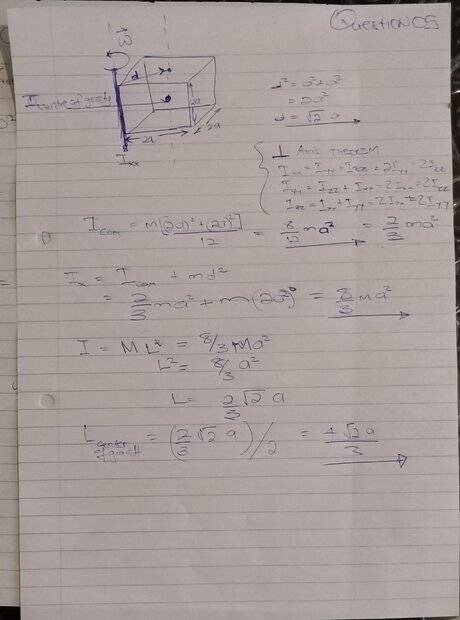 Question 05
ω
d
I centre of gravity
2a
2a
2a
Ixx
d² = a² + a²
= 2a²
d = √2 a
⊥ Axis THEOREM
Ixx = Iyy + Izz = 2Iyy = 2Izz
Iyy = Izz + Ixx = 2Ixx = 2Izz
Izz = Ixx + Iyy = 2Ixx = 2Iyy
I com = M[(2a)² + (2a)²] / 12 = 8/12 ma² = 2/3 ma²
Ix = I com + md²
= 2/3 ma² + m(2a²) = 8/3 Ma²
I = ML² = 8/3 Ma²
L² = 8/3 a²
L = 2/3 √2 a
L center of = (2/3 √2 a)/2 = √2 a / 3